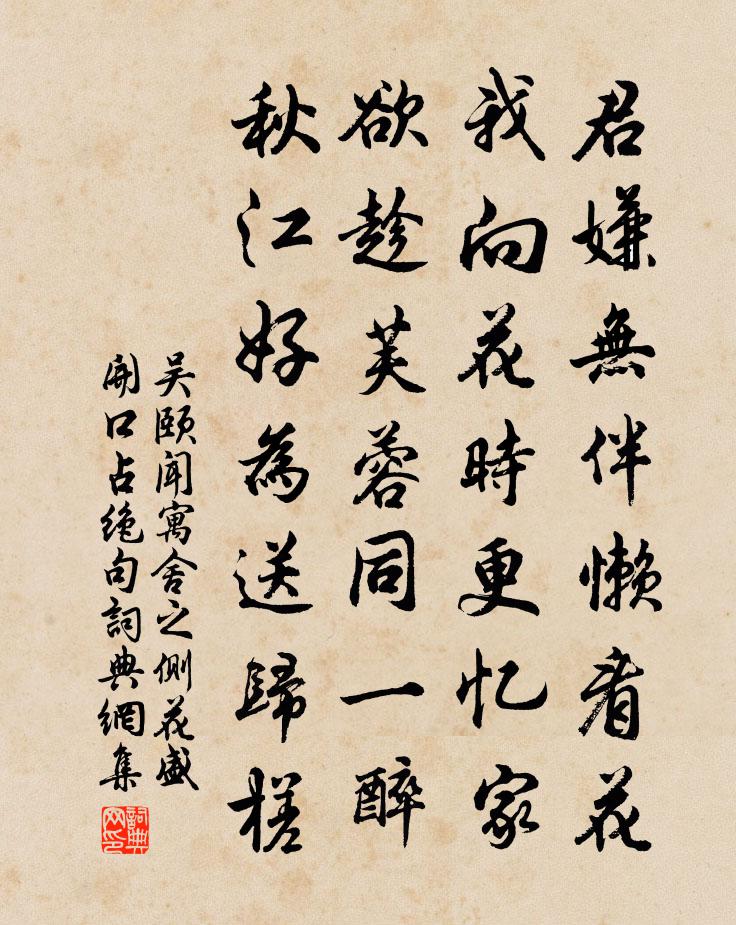 君嫌無伴懶看花
我向花時更忆家
欲趁芙蓉同一醉
秋江好為送歸槎
吴頤聞寓舍之側花盛
開口占绝句詞典網集
詞典
网印